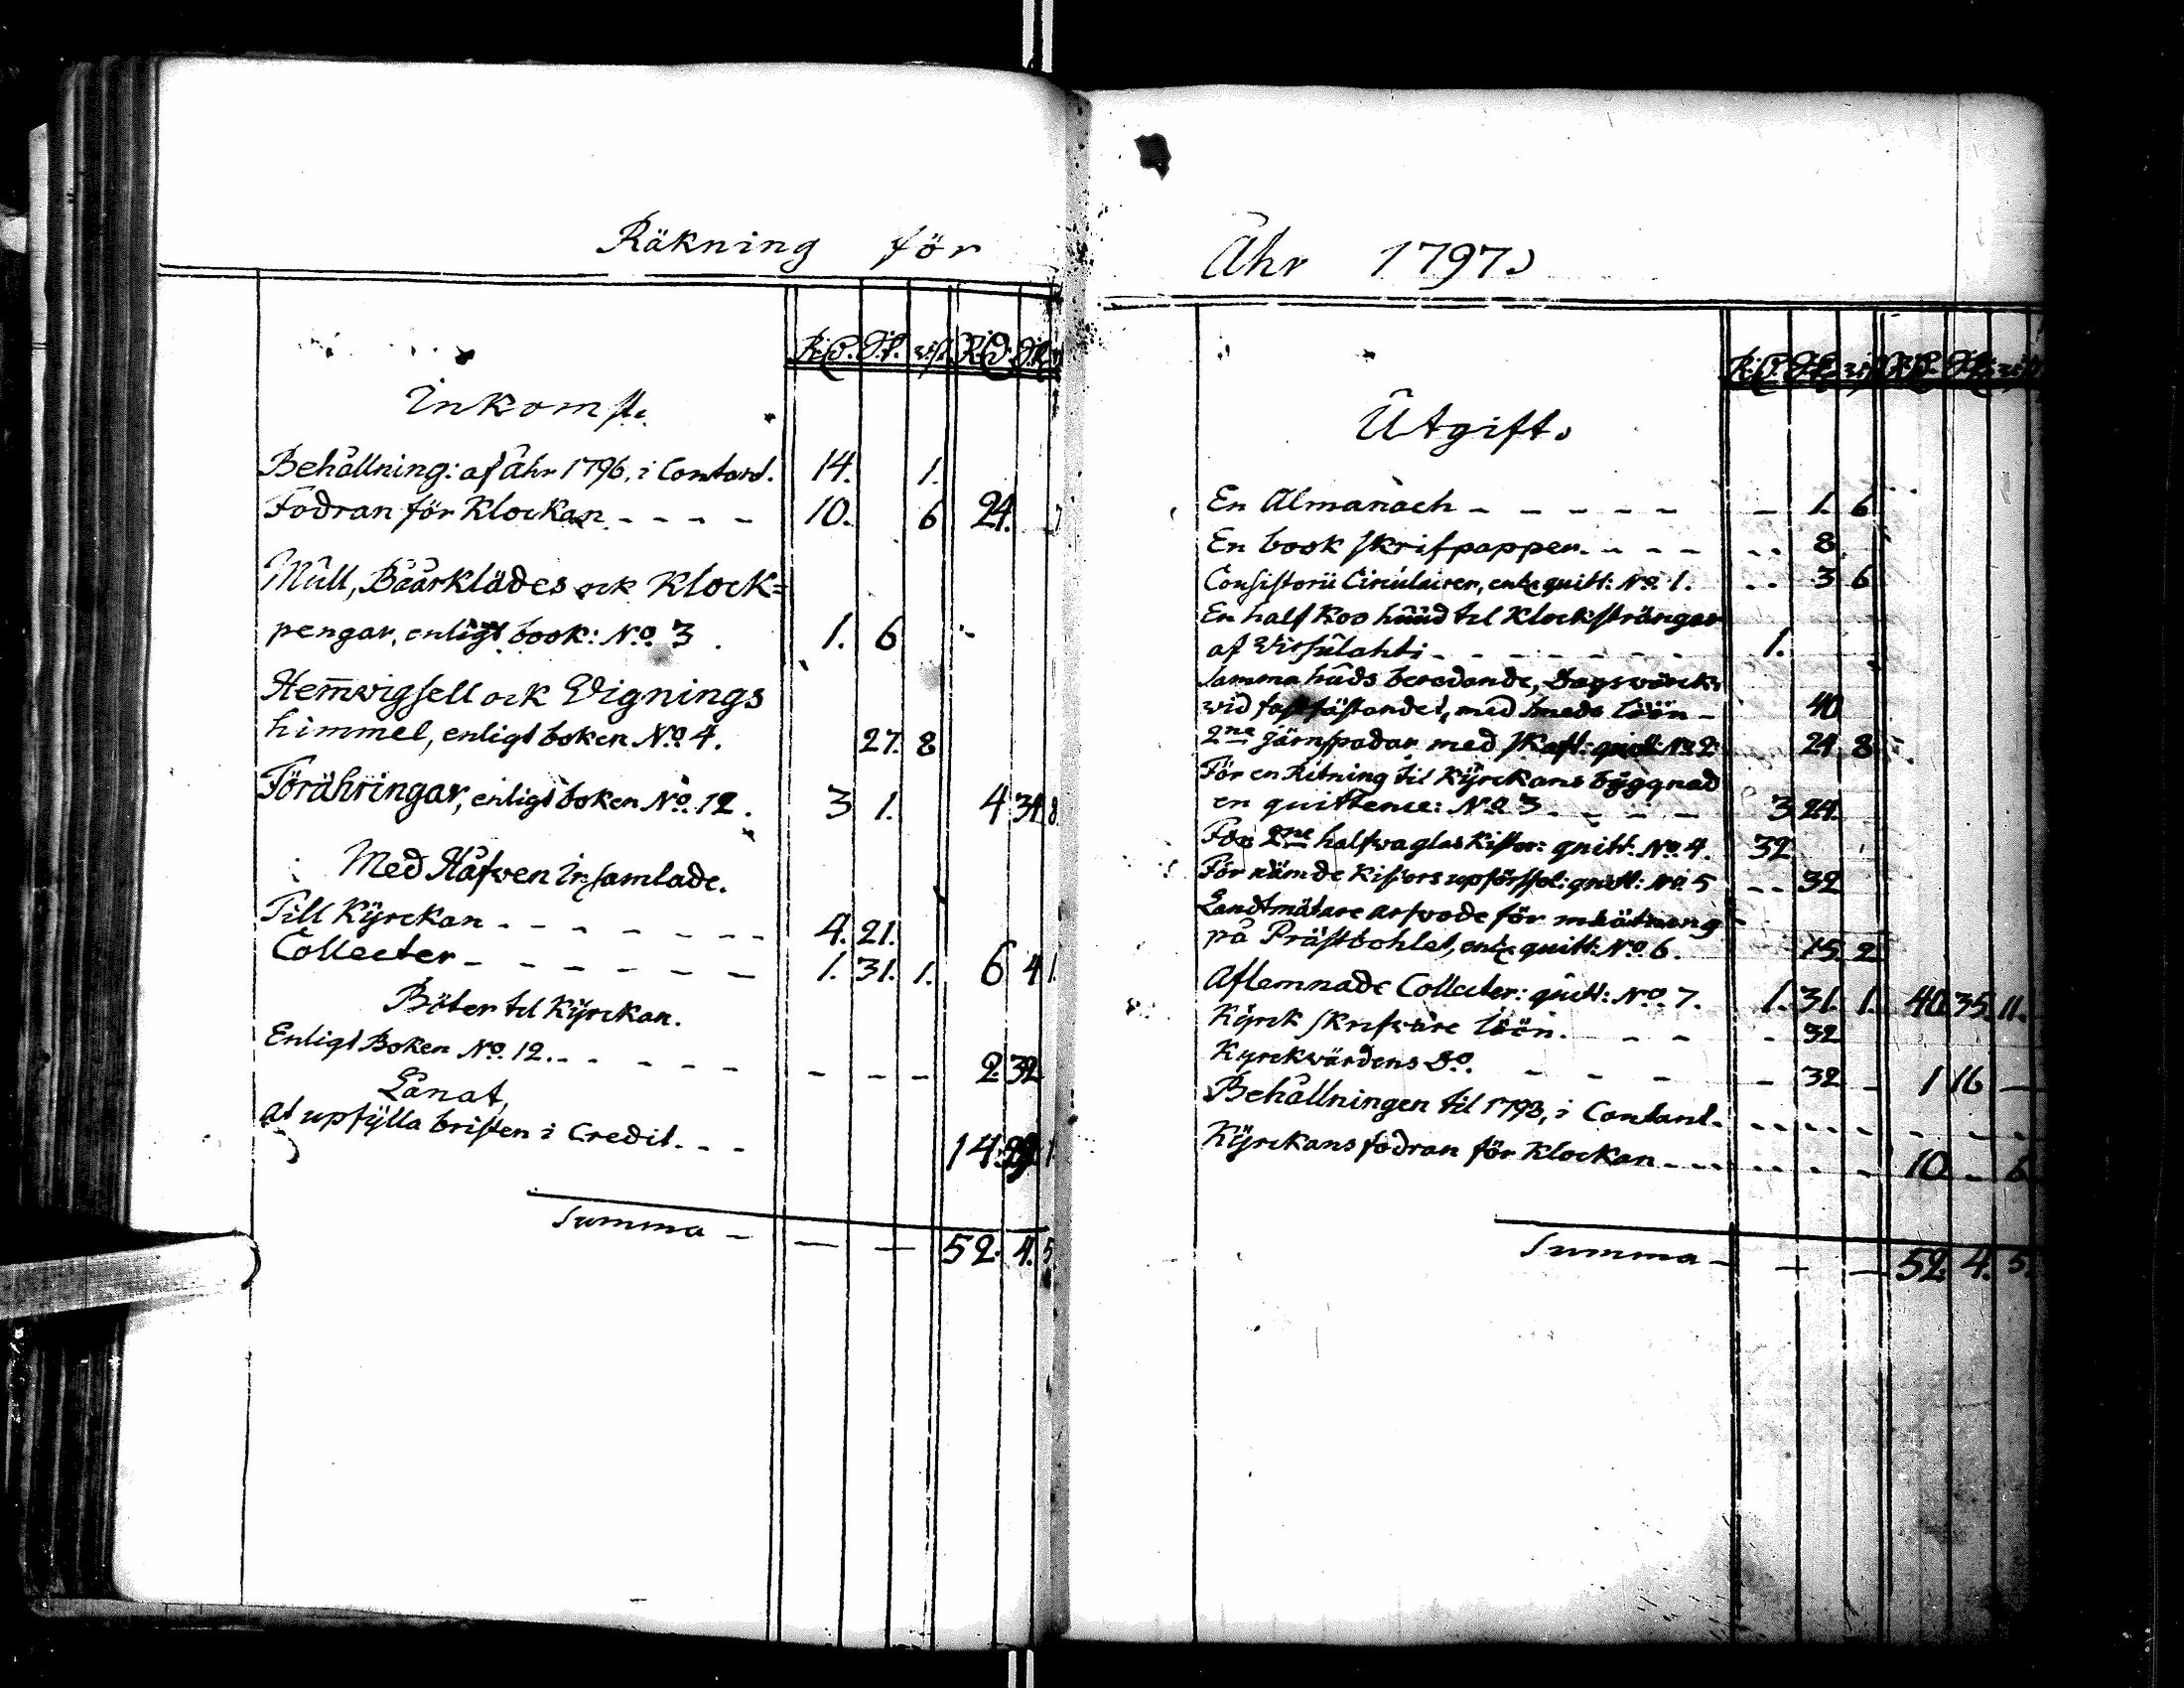 Räkning för
R:D. sk. rst. R:D. sk.
Inkomst.
Behållning: af åhr 1796, i Contant. 14. 1.
Fodran för Klockan - - - - 10. 6 24. 7
Mull, Båårklädes ock Klock=
pengar, enligt book: No. 3 1. 6
Hem̄vigsell ock Vignings
himmel, enligt boken No. 4. 27. 8
Förähringar, enligt boken No. 12. 3 1. 4 34. 8
Med Håfven Insamlade.
Till Kÿrckan - - - - - - - 4. 21.
Collecter - - - - - - 1. 31. 1. 6 4 1.
Böter til Kÿrckan.
Enligt Boken No. 12. - - - - - - - - 2. 32
Lånat,
at upfÿlla bristen i Credit. - - - 14. 1.
Summa - — — 52. 4. 5.
Åhr 1797.
R:D. sk. rst. R:D. sk. rst.
Utgift.
En Almanach - - - - - - 1. 6
En book skrifpapper. - - - - - 8.
Consistorii Circulairer, enl. quitt: No. 1. - - 3 6
En half Koo huud til Klockstränger
af Visulahti - - - - - - - 1.
Samma huds beredande, Dagsvärck
vid fastfästandet, med Smeds löön - 40
2ne järnspadar med skaft: quitt: No. 2. 24 8
För en Ritning til Kÿrckans bÿggnad
en quittence: No. 3 - - - - 3 24.
För 2ne halfva glas Kistor: quitt: No. 4. 32
För nämde Kistors upförssel: quitt: No. 5 - - 32
Landtmätare arfvode för mätning
på Prästbohlet, enl. quitt: No. 6. 15. 2
Aflemnade Collecter: quitt: No. 7. 1. 31. 1. 40 35. 11.
Kÿrck skrifvare löön. - - - 32
Kyrckvärdens Do. - - - - 32 - 1 16 —
Behållningen til 1798, i Contant. - - - - - - - -
Kÿrckans fodran för Klockan - - - - - - 10 - 6
Summa - — — 52. 4. 5.